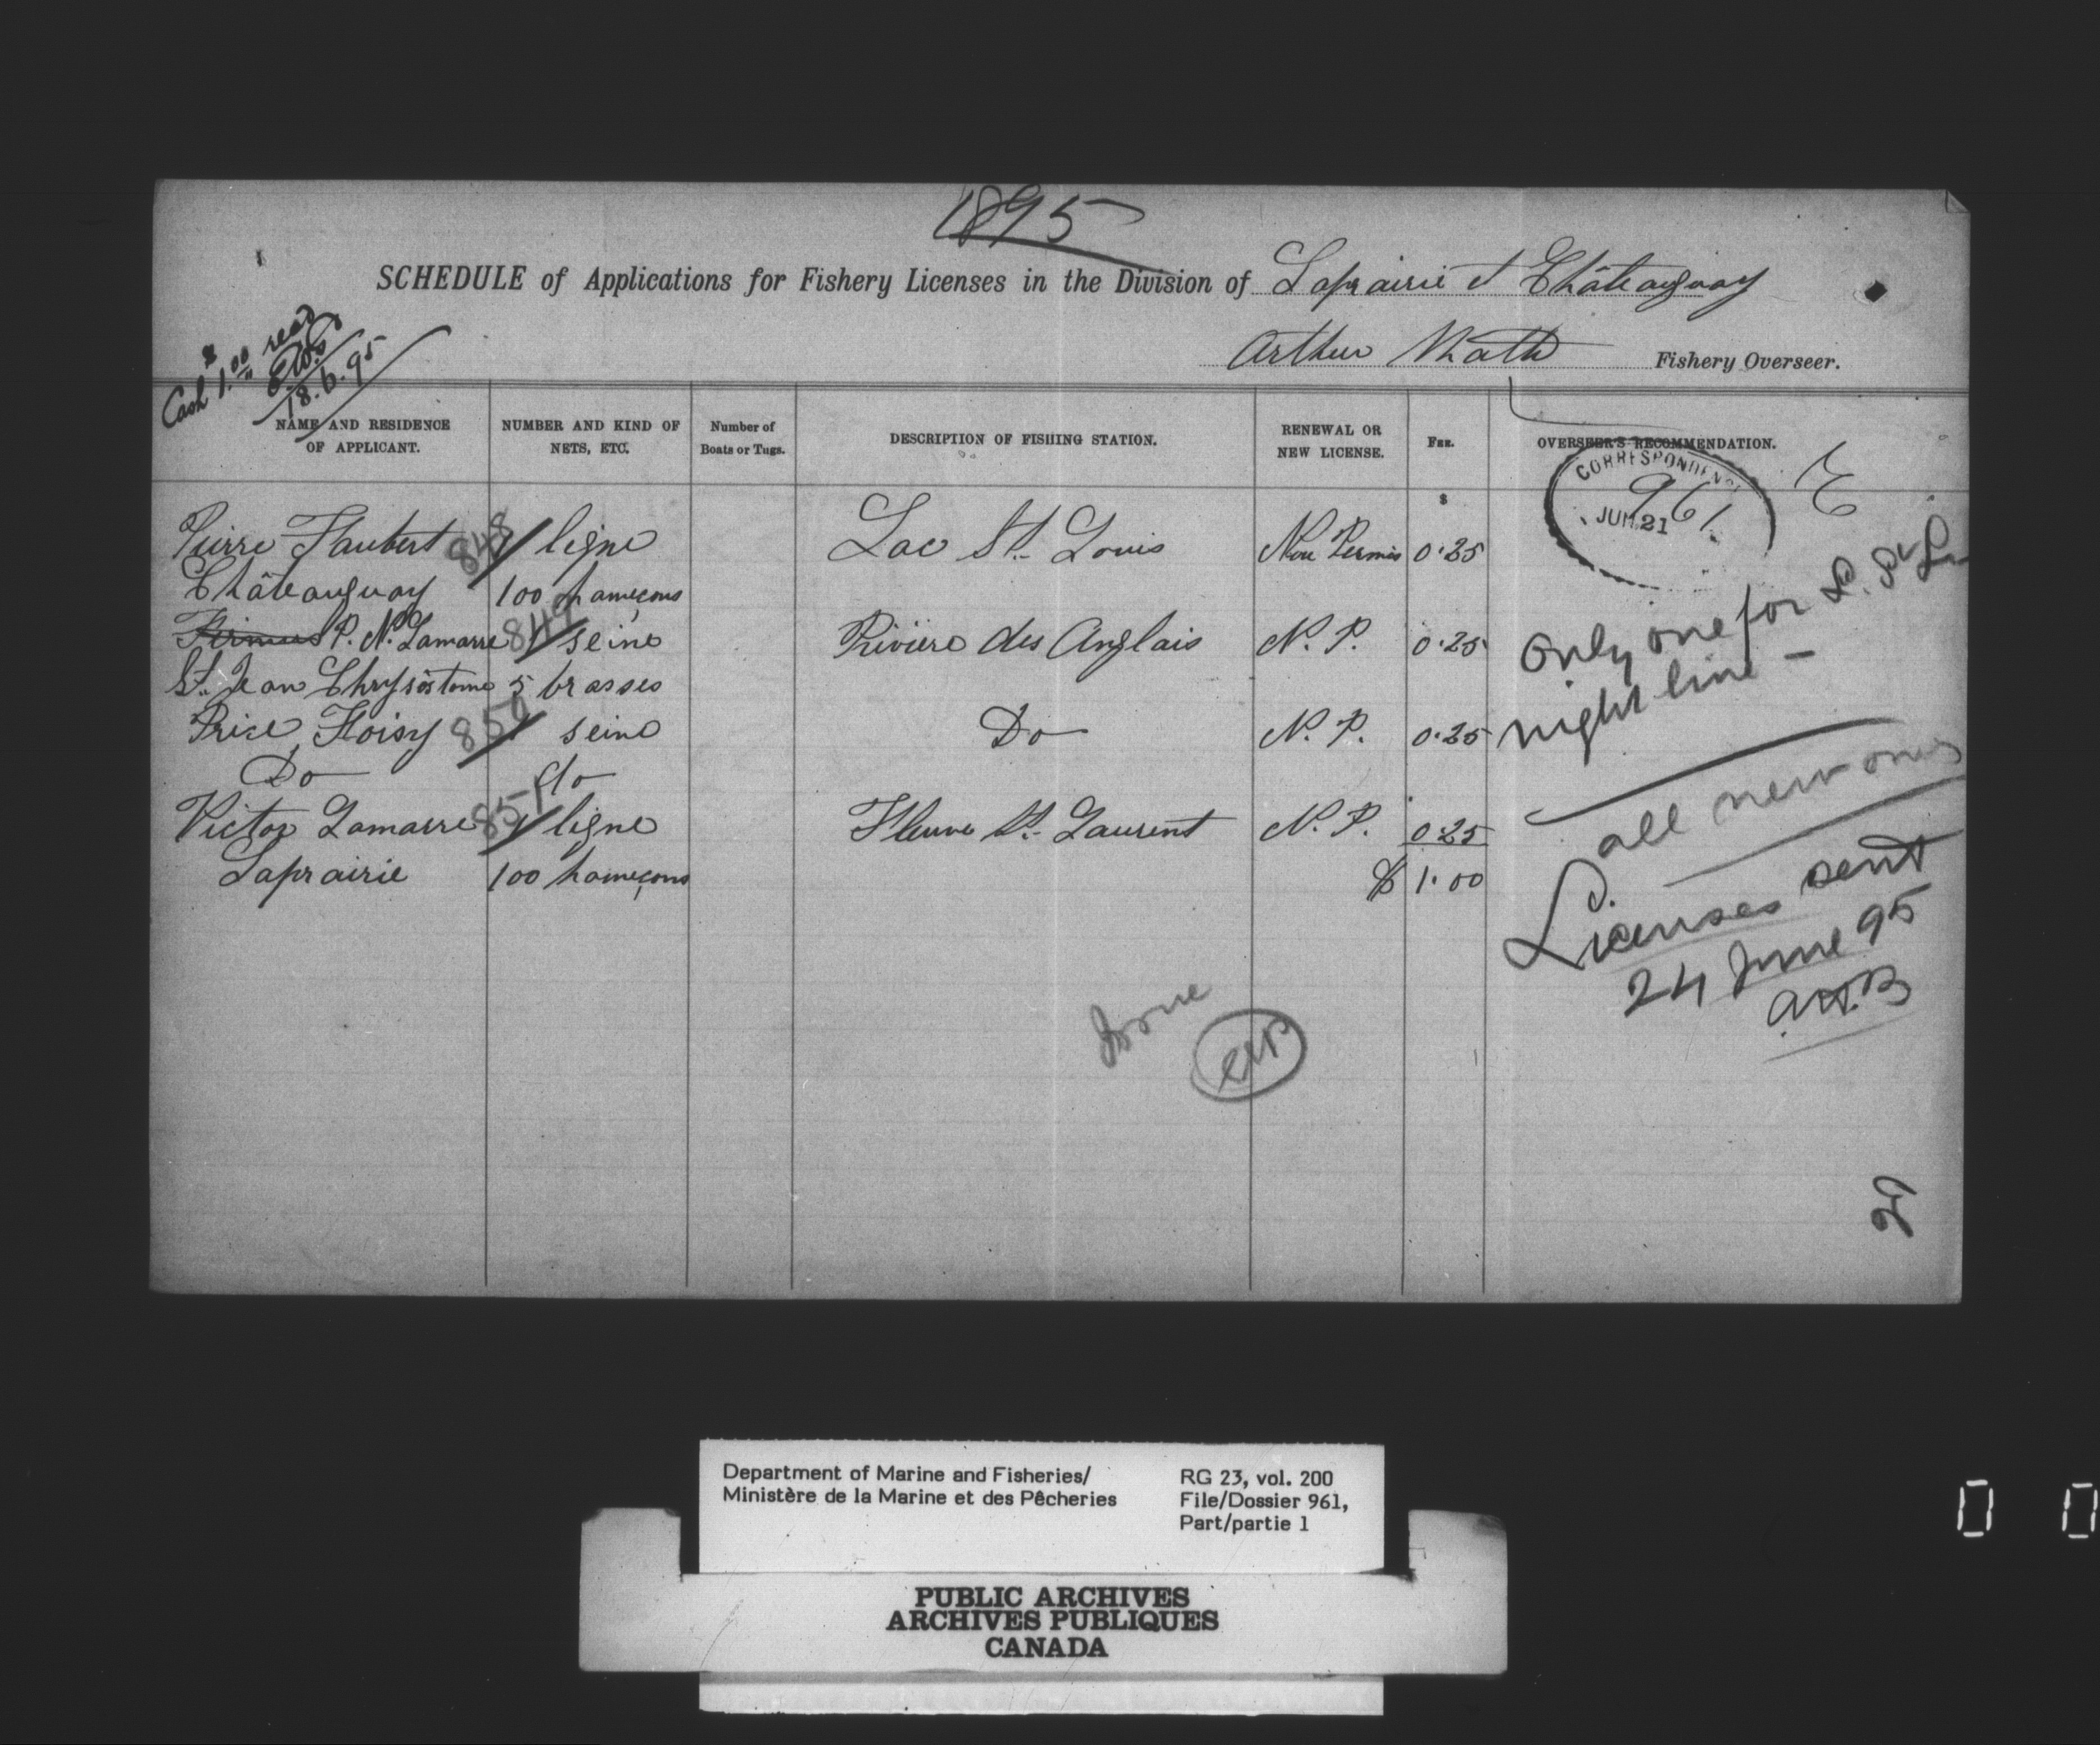 1895
SCHEDULE of Applications for Fishery Licenses in the Division of Laprairie et Châteauguay
Arthur Fishery Overseer.
Cash $1.00 recd
18.6.95
NAME AND RESIDENCE OF APPLICANT. NUMBER AND KIND OF NETS, ETC. Number of Boats or Tugs. DESCRIPTION OF FISHING STATION. RENEWAL OR NEW LICENSE. FEE. OVERSEER'S RECOMMENDATION.
CORRESPONDENCE
961
JUN 21
$
Pierre Faubert 848 1 ligne Lac St. Louis Nou Permis 0.25
Châteauguay 100 hameçons
P. N. Lamarre 849 1 seine Rivière des Anglais N. P. 0.25
St. Jean Chrysostome 5 brasses
Loisy 850 1 seine Do N. P. 0.25
Do do
Victor Lamarre 851 1 ligne Fleuve St. Laurent N. P. 0.25
Laprairie 100 hameçons $ 1.00
Only one for
night line —
all new ones
Licenses sent
24 June 95
29
Department of Marine and Fisheries/
Ministère de la Marine et des Pêcheries
RG 23, vol. 200
File/Dossier 961,
Part/partie 1
PUBLIC ARCHIVES
ARCHIVES PUBLIQUES
CANADA
0 0